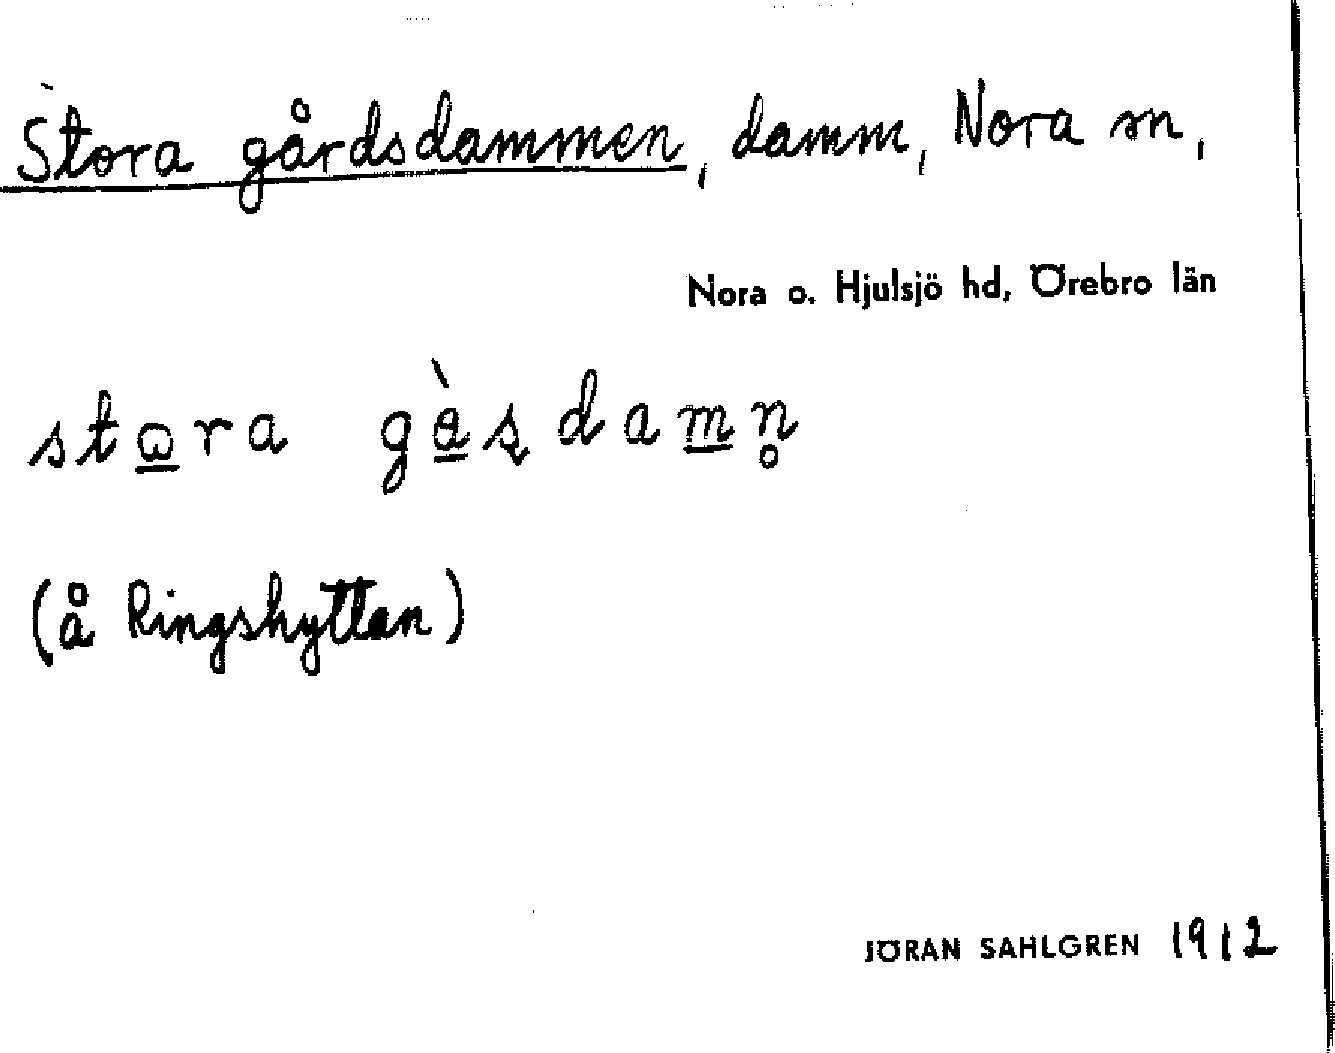 Stora gårdsdammen, damm, Nora sn,
Nora o. Hjulsjö hd, Örebro län
stɷra gàșdamn̥
(å Ringshyttan)
JÖRAN SAHLGREN 1912